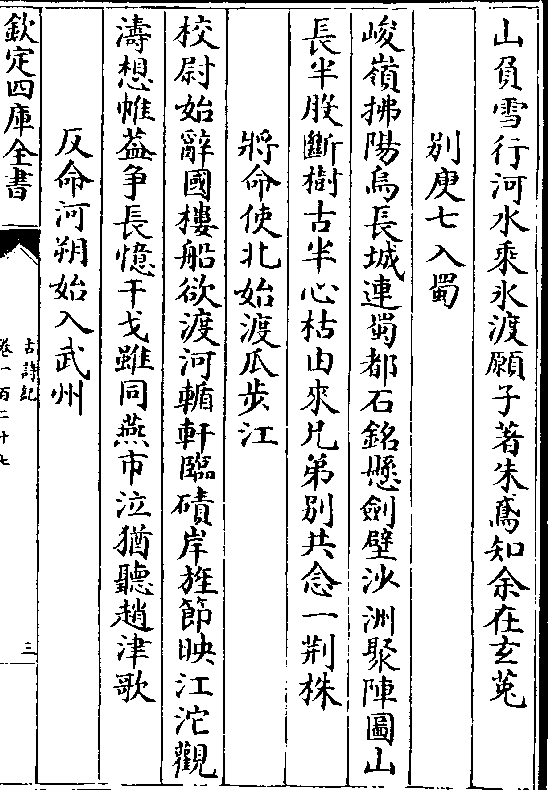 山負雪行河水乘氷渡願子著朱鳶知余在玄菟
别庾七入蜀
峻嶺拂陽烏長城連蜀都石銘懸劍壁沙洲聚陣圖山
長半股斷樹古半心枯由來兄弟别共念一荆株
將命使北始渡瓜步江
校尉始辭國樓船欲渡河輴軒臨磧岸旌節映江沱觀
濤想帷葢争長憶干戈雖同燕市泣猶聽趙津歌
反命河朔始入武州
欽定四庫全書
古詩紀
卷一百二十七
三